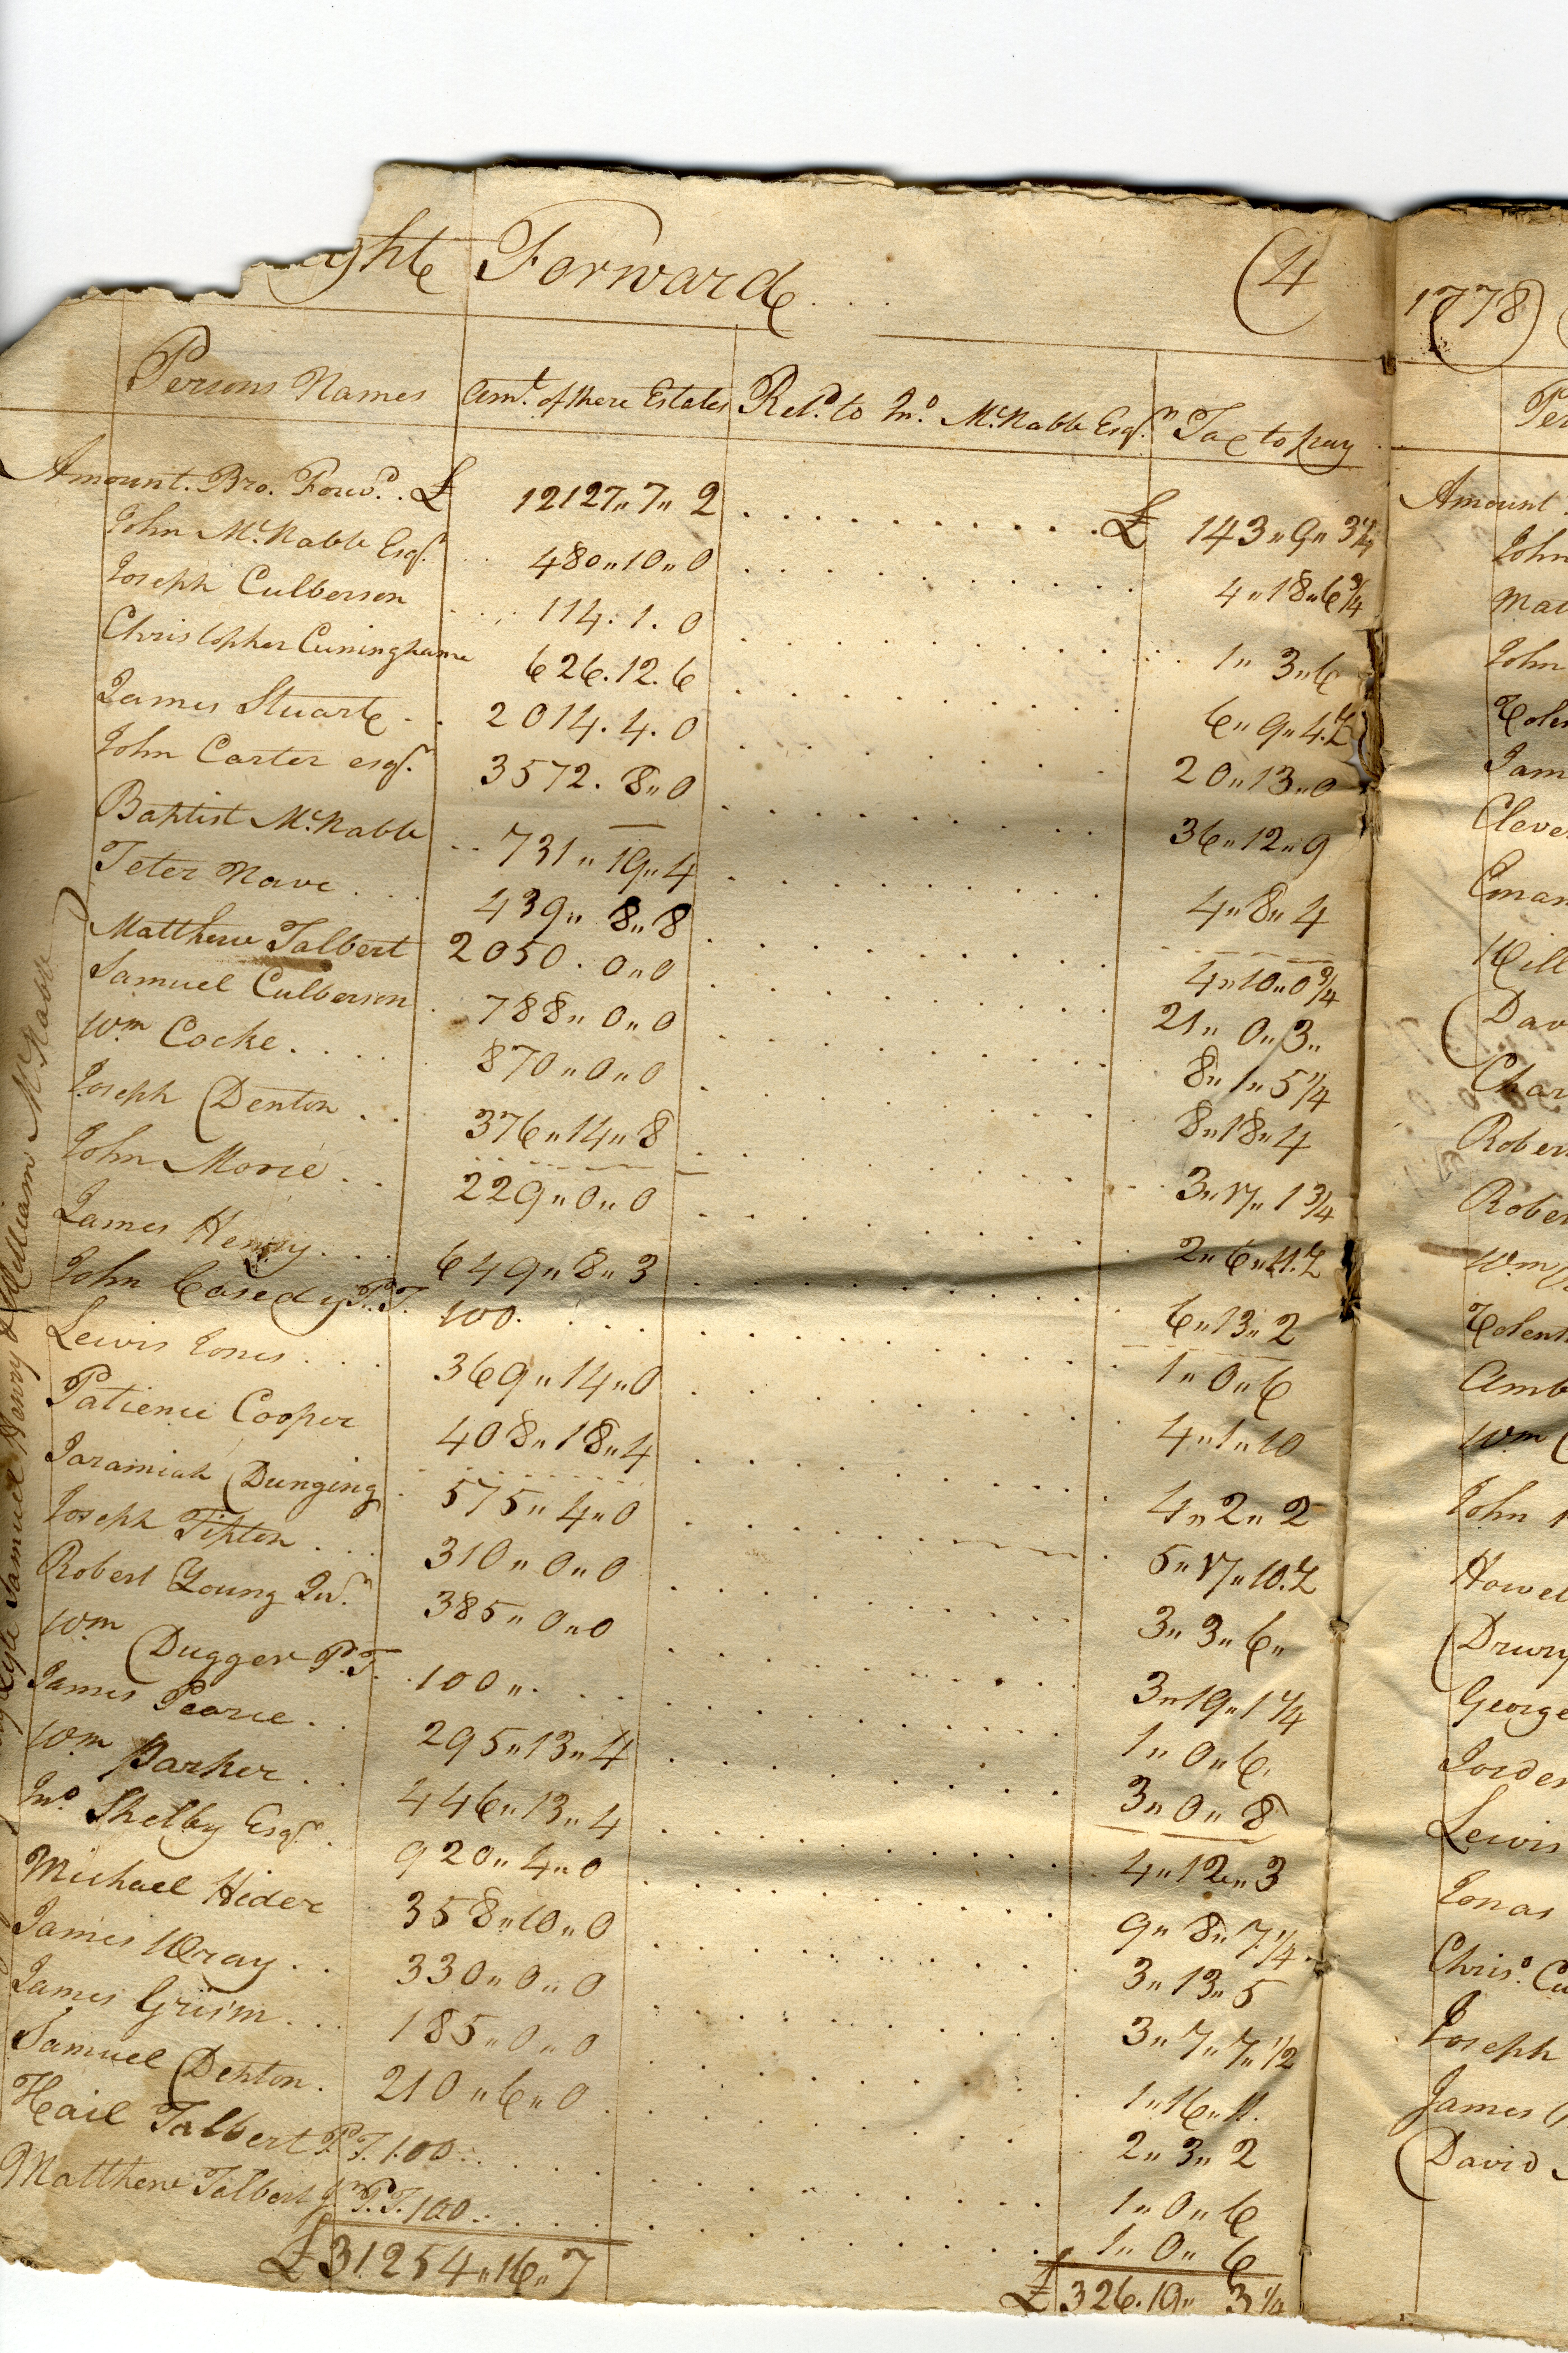 ght Forward
(4
Persons Names Amt. of there Estates Retd. to Jno. McNabb Esqr. Tax to pay
Amount. Bro. Forwd. £ 12127"7"2 £ 143"9"3 1/4
John McNabb Esqr. 480"10"0 4"18"6 3/4
Joseph Culberson 114.1.0 1"3"6
Christopher Cuninghame 626.12.6 6"9"4.1/2
James Stuart 2014.4.0 20"13"0
John Carter esqr. 3572.8"0 36"12"9
Baptist McNabb 731"19"4 4"8"4
Teter Nave 439"8"8 4"10"0 3/4
Matthew Talbert 2050.0"0 21"0"3"
Samuel Culberson 788"0"0 8"1"5 1/4
Wm Cocke 870"0"0 8"18"4
Joseph Denton 376"14"8 3"17"1 3/4
John Morie 229"0"0 2"6"11.1/2
James Henry 649"8"3 6"13"2
John Casedy P.T. 100. 1"0"6
Lewis Jones 369"14"0 4"1"10
Patience Cooper 408"18"4 4"2"2
Jaramiah Dunging 575"4"0 5"17"10.1/2
Joseph Tipton 310"0"0 3"3"6"
Robert Young Jur. 385"0"0 3"19"1 1/4
Wm Dugger P.T. 100" 1"0"6.
James Pearce 295"13"4 3"0"8
Wm Parker 446"13"4 4"12"3
Jno. Shelby Esqr. 920"4"0 9"8"7.1/4
Michael Hider 358"10"0 3"13"5
James Wray 330"0"0 3"7"7"1/2
James Grisim 185"0"0 1"16"11.
Samuel Denton 210"6"0 2"3"2
Hail Talbert P.T. 100 1"0"6
Matthew Talbert Jr P.T. 100 1"0"6
£31254"16"7 £326.19"3 1/4
Lyle Samuel Henry & William McNabb
1778)
Per
Amount
John
Mat
John
Jam
Cleve
Eman
Will
Dav
Char
Rober
Rober
Wm
Amb
Wm
John
Howel
Drury
George
Jorden
Lewis
Jonas
Chrisr. Cu
Joseph
James
David